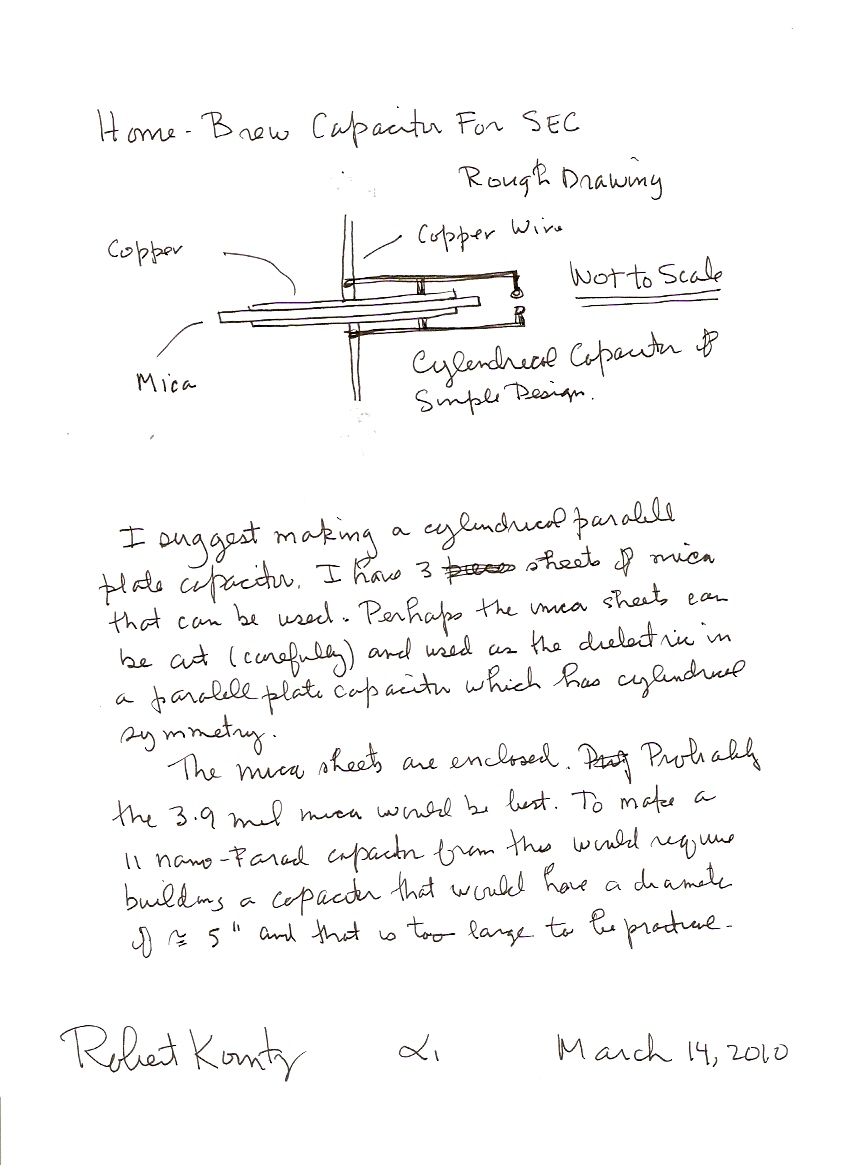 Home-Brew Capacitor For SEC
Rough Drawing
Copper
Copper Wire
Not to Scale
Mica
Cylendrical Capacitor of
Simple Design.
I suggest making a cylendrical paralell
plate capacitor. I have 3 sheets of mica
that can be used. Perhaps the mica sheets can
be cut (carefully) and used as the dielectric in
a paralell plate capacitor which has cylendrical
symmetry.
The mica sheets are enclosed. Probably
the 3.9 mil mica would be best. To make a
11 nano-Farad capacitor from this would require
building a capacitor that would have a diameter
of ≅ 5" and that is too large to be practical.
Robert Komtz α1 March 14, 2010